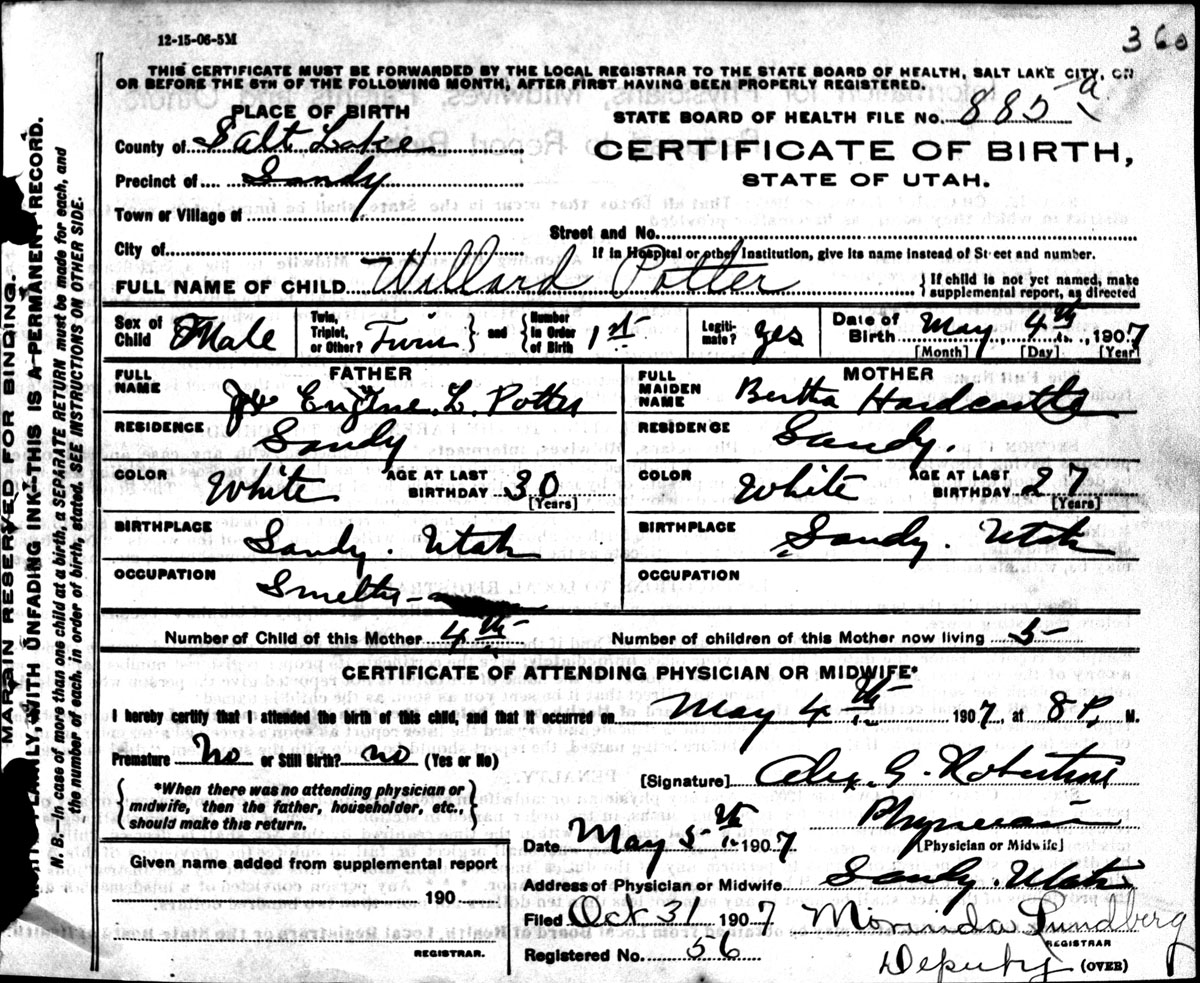 12-15-06-5M
360
THIS CERTIFICATE MUST BE FORWARDED BY THE LOCAL REGISTRAR TO THE STATE BOARD OF HEALTH, SALT LAKE CITY, ON
OR BEFORE THE 5TH OF THE FOLLOWING MONTH, AFTER FIRST HAVING BEEN PROPERLY REGISTERED.
PLACE OF BIRTH
STATE BOARD OF HEALTH FILE No. 885 a
County of Salt Lake
CERTIFICATE OF BIRTH,
Precinct of Sandy
STATE OF UTAH.
Town or Village of
Street and No.
City of
If in Hospital or other Institution, give its name instead of Street and number.
FULL NAME OF CHILD Willard Potter
If child is not yet named, make
supplemental report, as directed
Sex of Child Male
Twin, Triplet, or Other? Twin and Number in Order of Birth 1st
Legiti-mate? Yes
Date of Birth May 4th, 1907
[Month] [Day] [Year]
FATHER
FULL NAME Eugine L. Potter
RESIDENCE Sandy
COLOR White AGE AT LAST BIRTHDAY 30 [Years]
BIRTHPLACE Sandy. Utah
OCCUPATION Smelter
MOTHER
FULL MAIDEN NAME Bertha Hardcastle
RESIDENCE Sandy.
COLOR White AGE AT LAST BIRTHDAY 27 [Years]
BIRTHPLACE Sandy. Utah
OCCUPATION
Number of Child of this Mother 4th Number of children of this Mother now living 5
CERTIFICATE OF ATTENDING PHYSICIAN OR MIDWIFE*
I hereby certify that I attended the birth of this child, and that it occurred on May 4th 1907, at 8 P. M.
Premature No or Still Birth? no (Yes or No)
*When there was no attending physician or
midwife, then the father, householder, etc.,
should make this return.
[Signature] Alex. G. Robertson
Physician
[Physician or Midwife]
Date May 5th 1907
Given name added from supplemental report
190
REGISTRAR.
Address of Physician or Midwife Sandy. Utah
Filed Oct 31 1907 Miranda Lundberg
REGISTRAR
Registered No. 56 Deputy (OVER)
MARGIN RESERVED FOR BINDING.
PLAINLY, WITH UNFADING INK—THIS IS A PERMANENT RECORD.
N. B.—In case of more than one child at a birth, a SEPARATE RETURN must be made for each, and
the number of each, in order of birth, stated. SEE INSTRUCTIONS ON OTHER SIDE.